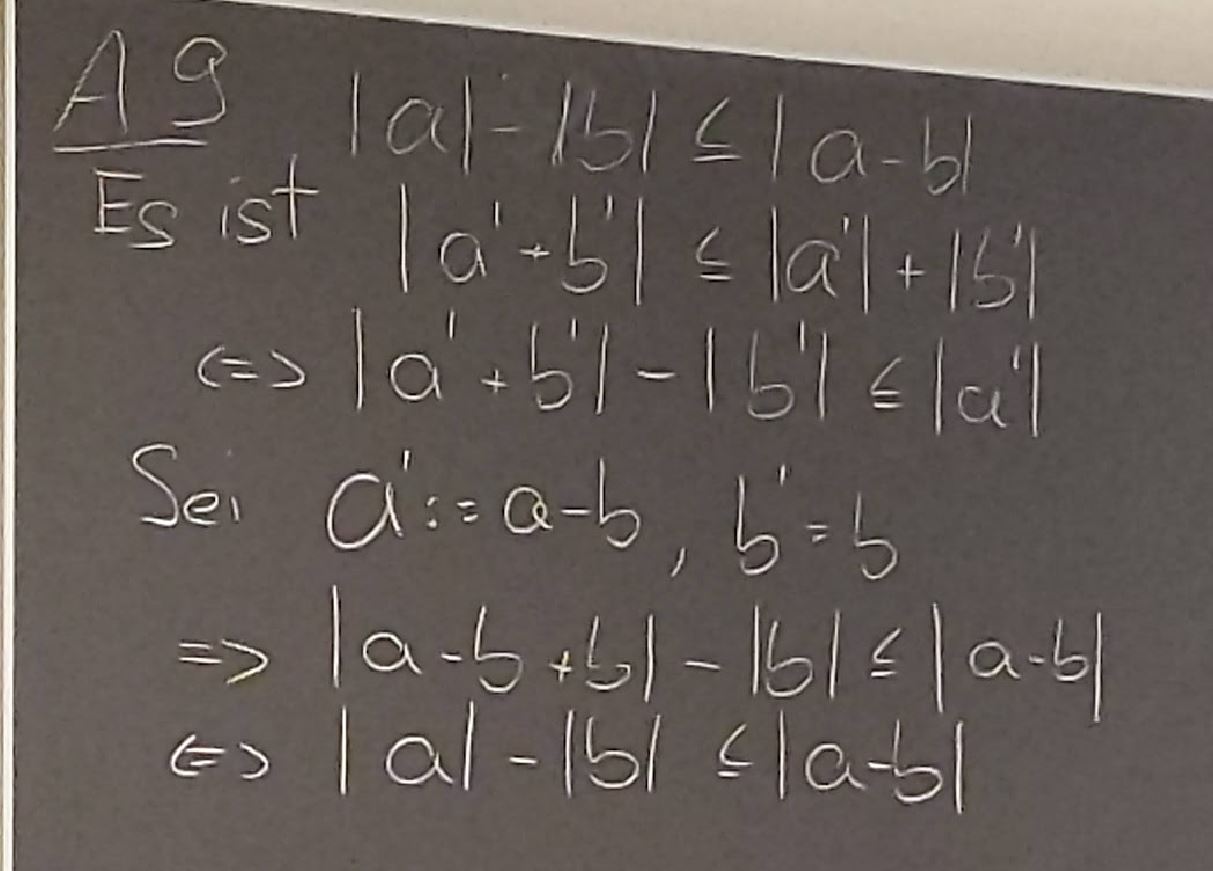 A9 |a| - |b| ≤ |a-b|
Es ist |a'+b'| ≤ |a'| + |b'|
<=> |a'+b'| - |b'| ≤ |a'|
Sei a' := a-b, b' = b
=> |a-b+b| - |b| ≤ |a-b|
<=> |a| - |b| ≤ |a-b|